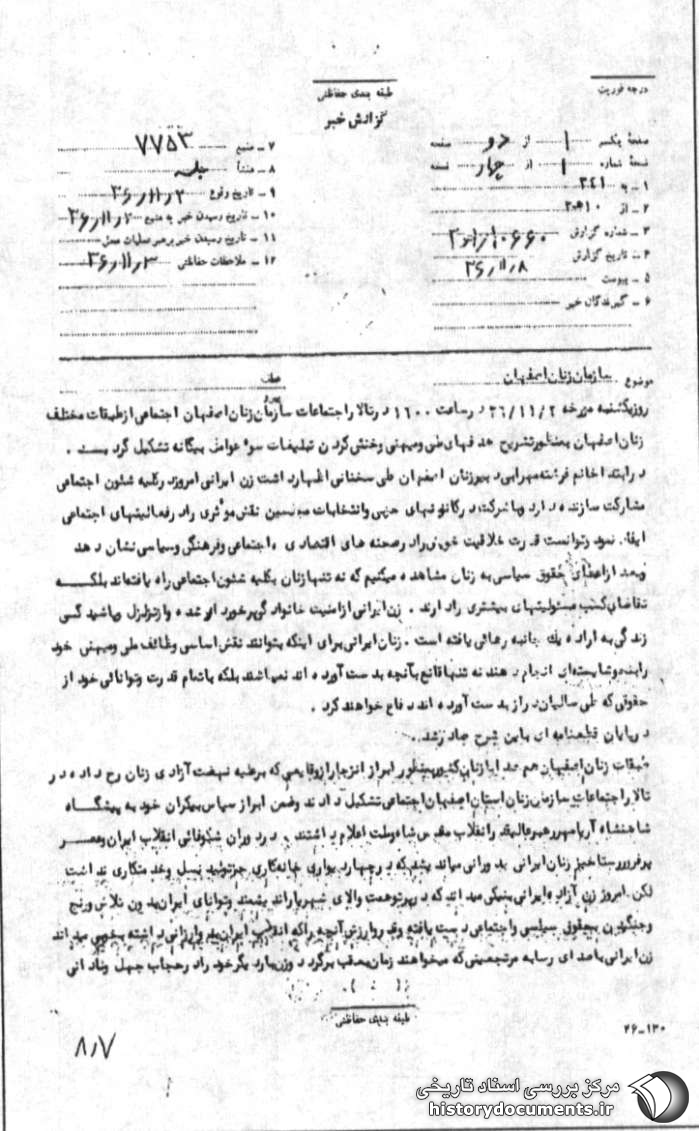 درجه فوریت
طبقه بندی حفاظتی
گزارش خبر
صفحهٔ یکسر ۱ از دو صفحه
نسخهٔ شماره ۱ از چهار نسخه
۱ - به ۳۴۱
۲ - از ۲۰ه۱۰
۳ - شماره گزارش
۴ - تاریخ گزارش ۳۶/۱۱/۸
۵ - پیوست
۶ - گیرندگان خبر
۷ - منبع ۷۷۵۳
۸ - منشأ جلسه
۹ - تاریخ وقوع ۳۶/۱۱/۲
۱۰ - تاریخ رسیدن خبر به منبع ۳۶/۱۱/۲
۱۱ - تاریخ رسیدن خبر برهبر عملیات محل
۱۲ - ملاحظات حفاظتی ۳۶/۱۱/۳
موضوع سازمان زنان اصفهان
روز یکشنبه مورخه ۳۶/۱۱/۲ در ساعت ۱۶۰۰ در تالار اجتماعات سازمان زنان اصفهان اجتماعی از طبقات مختلف
زنان اصفهان بمنظور تشریح هدفهای ملی و میهنی و خنثی کردن تبلیغات سوء عوامل بیگانه تشکیل گردید .
در ابتدا خانم فرشته مهرابی دبیر زنان اصفهان طی سخنانی اظهار داشت زن ایرانی امروز در کلیه شئون اجتماعی
مشارکت سازنده دارد و با شرکت در کانونهای حزبی و انتخابات نقش موثری را در فعالیتهای اجتماعی
ایفا نمود و توانست قدرت خلاقیت خویش را در صحنه های اقتصادی و اجتماعی و فرهنگی و سیاسی نشان دهد
و بعد از اعطای حقوق سیاسی به زنان مشاهده میکنیم که نه تنها زنان بکلیه شئون اجتماعی راه یافته اند بلکه
تقاضای کسب مسئولیتهای بیشتری را دارند . زن ایرانی از امنیت خانواده گی برخوردار شده و از تزلزل و پاشیدگی
زندگی به اراده یک جانبه رهائی یافته است . زنان ایرانی برای اینکه بتوانند نقش اساسی وظائف ملی و میهنی خود
را بنحو شایسته ای انجام دهند نه تنها قانع بآنچه بدست آورده اند نمیباشند بلکه با تمام قدرت و توانائی خود از
حقوقی که طی سالیان دراز بدست آورده اند دفاع خواهند کرد .
در پایان قطعنامه ای باین شرح صادر شد .
طبقات زنان اصفهان همصدا با زنان کشور بمنظور ابراز انزجار از وقایعی که بر علیه نهضت آزادی زنان رخ داده در
تالار اجتماعات سازمان زنان استان اصفهان اجتماعی تشکیل دادند و ضمن ابراز سپاس بیکران خود به پیشگاه
شاهنشاه آریامهر رهبر عالیقدر انقلاب مقدس شاه و ملت اعلام داشتند . در دوران شکوفائی انقلاب ایران و عصر
پر فروز رستاخیز زنان ایرانی بدورانی میاندیشد که در چهار دیواری خانه کاری جز تولید نسل و خدمتکاری نداشت
لکن امروز زن آزاده ایرانی بنیکی میداند که در پرتو همت والای شهریار اندیشمند و توانای ایران بدون تلاش و رنج
و جنگیدن بحقوق سیاسی و اجتماعی دست یافته و قدر و ارزش آنچه را که انقلاب ایران بدو ارزانی داشته بخوبی میداند
زن ایرانی با صدای رسا به مرتجعینی که میخواهند زمان بعقب برگردد و زن بار دیگر خود را در حجاب جهل و نادانی
طبقه بندی حفاظتی
۲۶-۱۳۰
۸/۷
مرکز بررسی اسناد تاریخی
historydocuments.ir